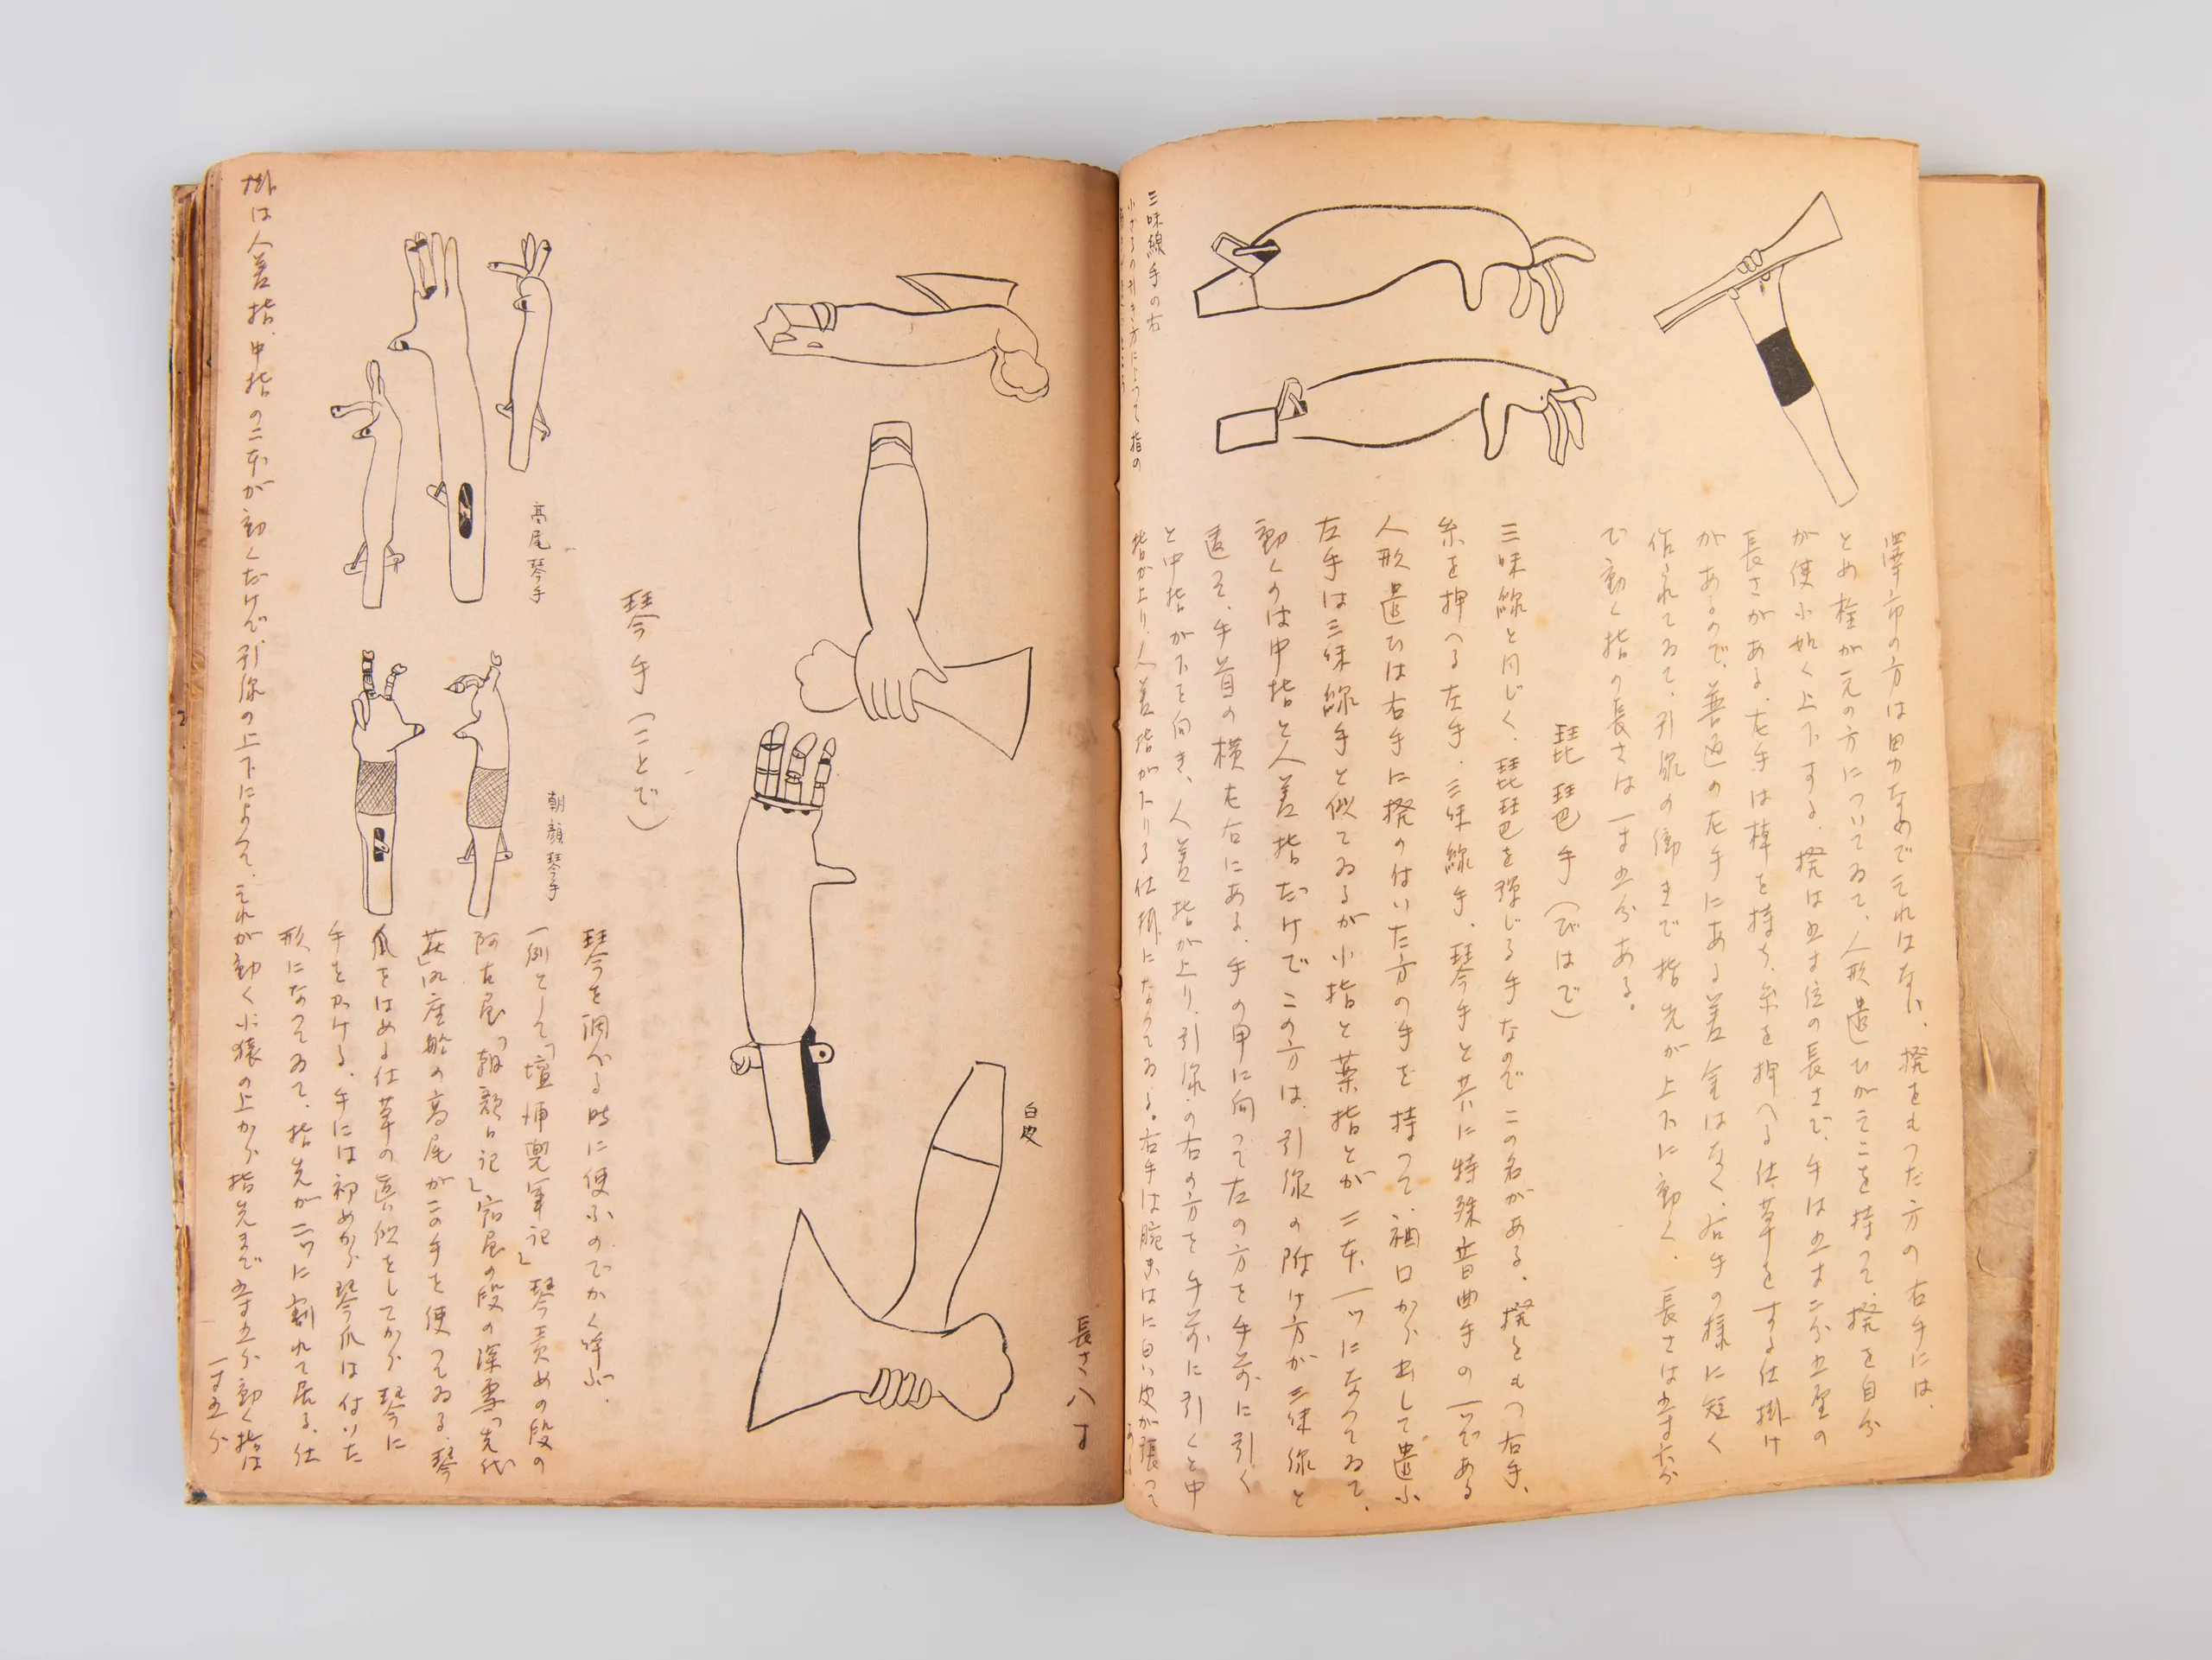 澤市の方は男なのでそれはない、撥をもつた方の右手には、
とめ栓が元の方についてゐて、人形遣ひがそこを持つて、撥を自分
が使ふ如く上下する。撥は五寸位の長さで、手は五寸二分五厘の
長さがある。左手は棹を持ち、糸を押へる仕草をする仕掛け
があるので、普通の左手にある差金はなく、右手の様に短く
作られてゐて、引線の働きで指先が上下に動く、長さは五寸六分
で動く指の長さは一寸五分ある。
琵琶手(びはで)
三味線と同じく、琵琶を弾じる手なのでこの名がある、撥をもつ右手、
糸を押へる左手、三味線手、琴手と共に特殊音曲手の一つである
人形遣ひは右手に撥の付いた方の手を持つて、袖口から出して遣ふ
左手は三味線手と似てゐるが小指と薬指とが二本一ツになつてゐて、
動くのは中指と人差指だけでこの方は、引線の附け方が三味線と
違そ、手首の横左右にある、手の甲に向つて左の方を手前に引く
と中指が下を向き、人差指が上り、引線の右の方を手前に引くと中
指が上り、人差指が下りる仕掛になつてゐる。右手は腕きはに白い皮が張つて
三味線手の右
小ざるの引き方によつて指の
長さ八寸
白皮
琴手(ことで)
琴を調べる時に使ふのでかく呼ぶ、
一例として「壇浦兜軍記」琴責めの段の
阿古屋「朝顔日記」宿屋の段の深雪「先代
萩」御座船の高尾がこの手を使つてゐる、琴
爪をはめる仕草の真似をしてから琴に
手をかける、手には初めから琴爪は付いた
形になつてゐて、指先が二ツに割れて居る、仕
掛は人差指、中指の二本が動くだけで、引線の上下によつて、それが動く小猿の上から指先まで五寸五分動く指は
一寸五分
高尾琴手
朝顔琴手